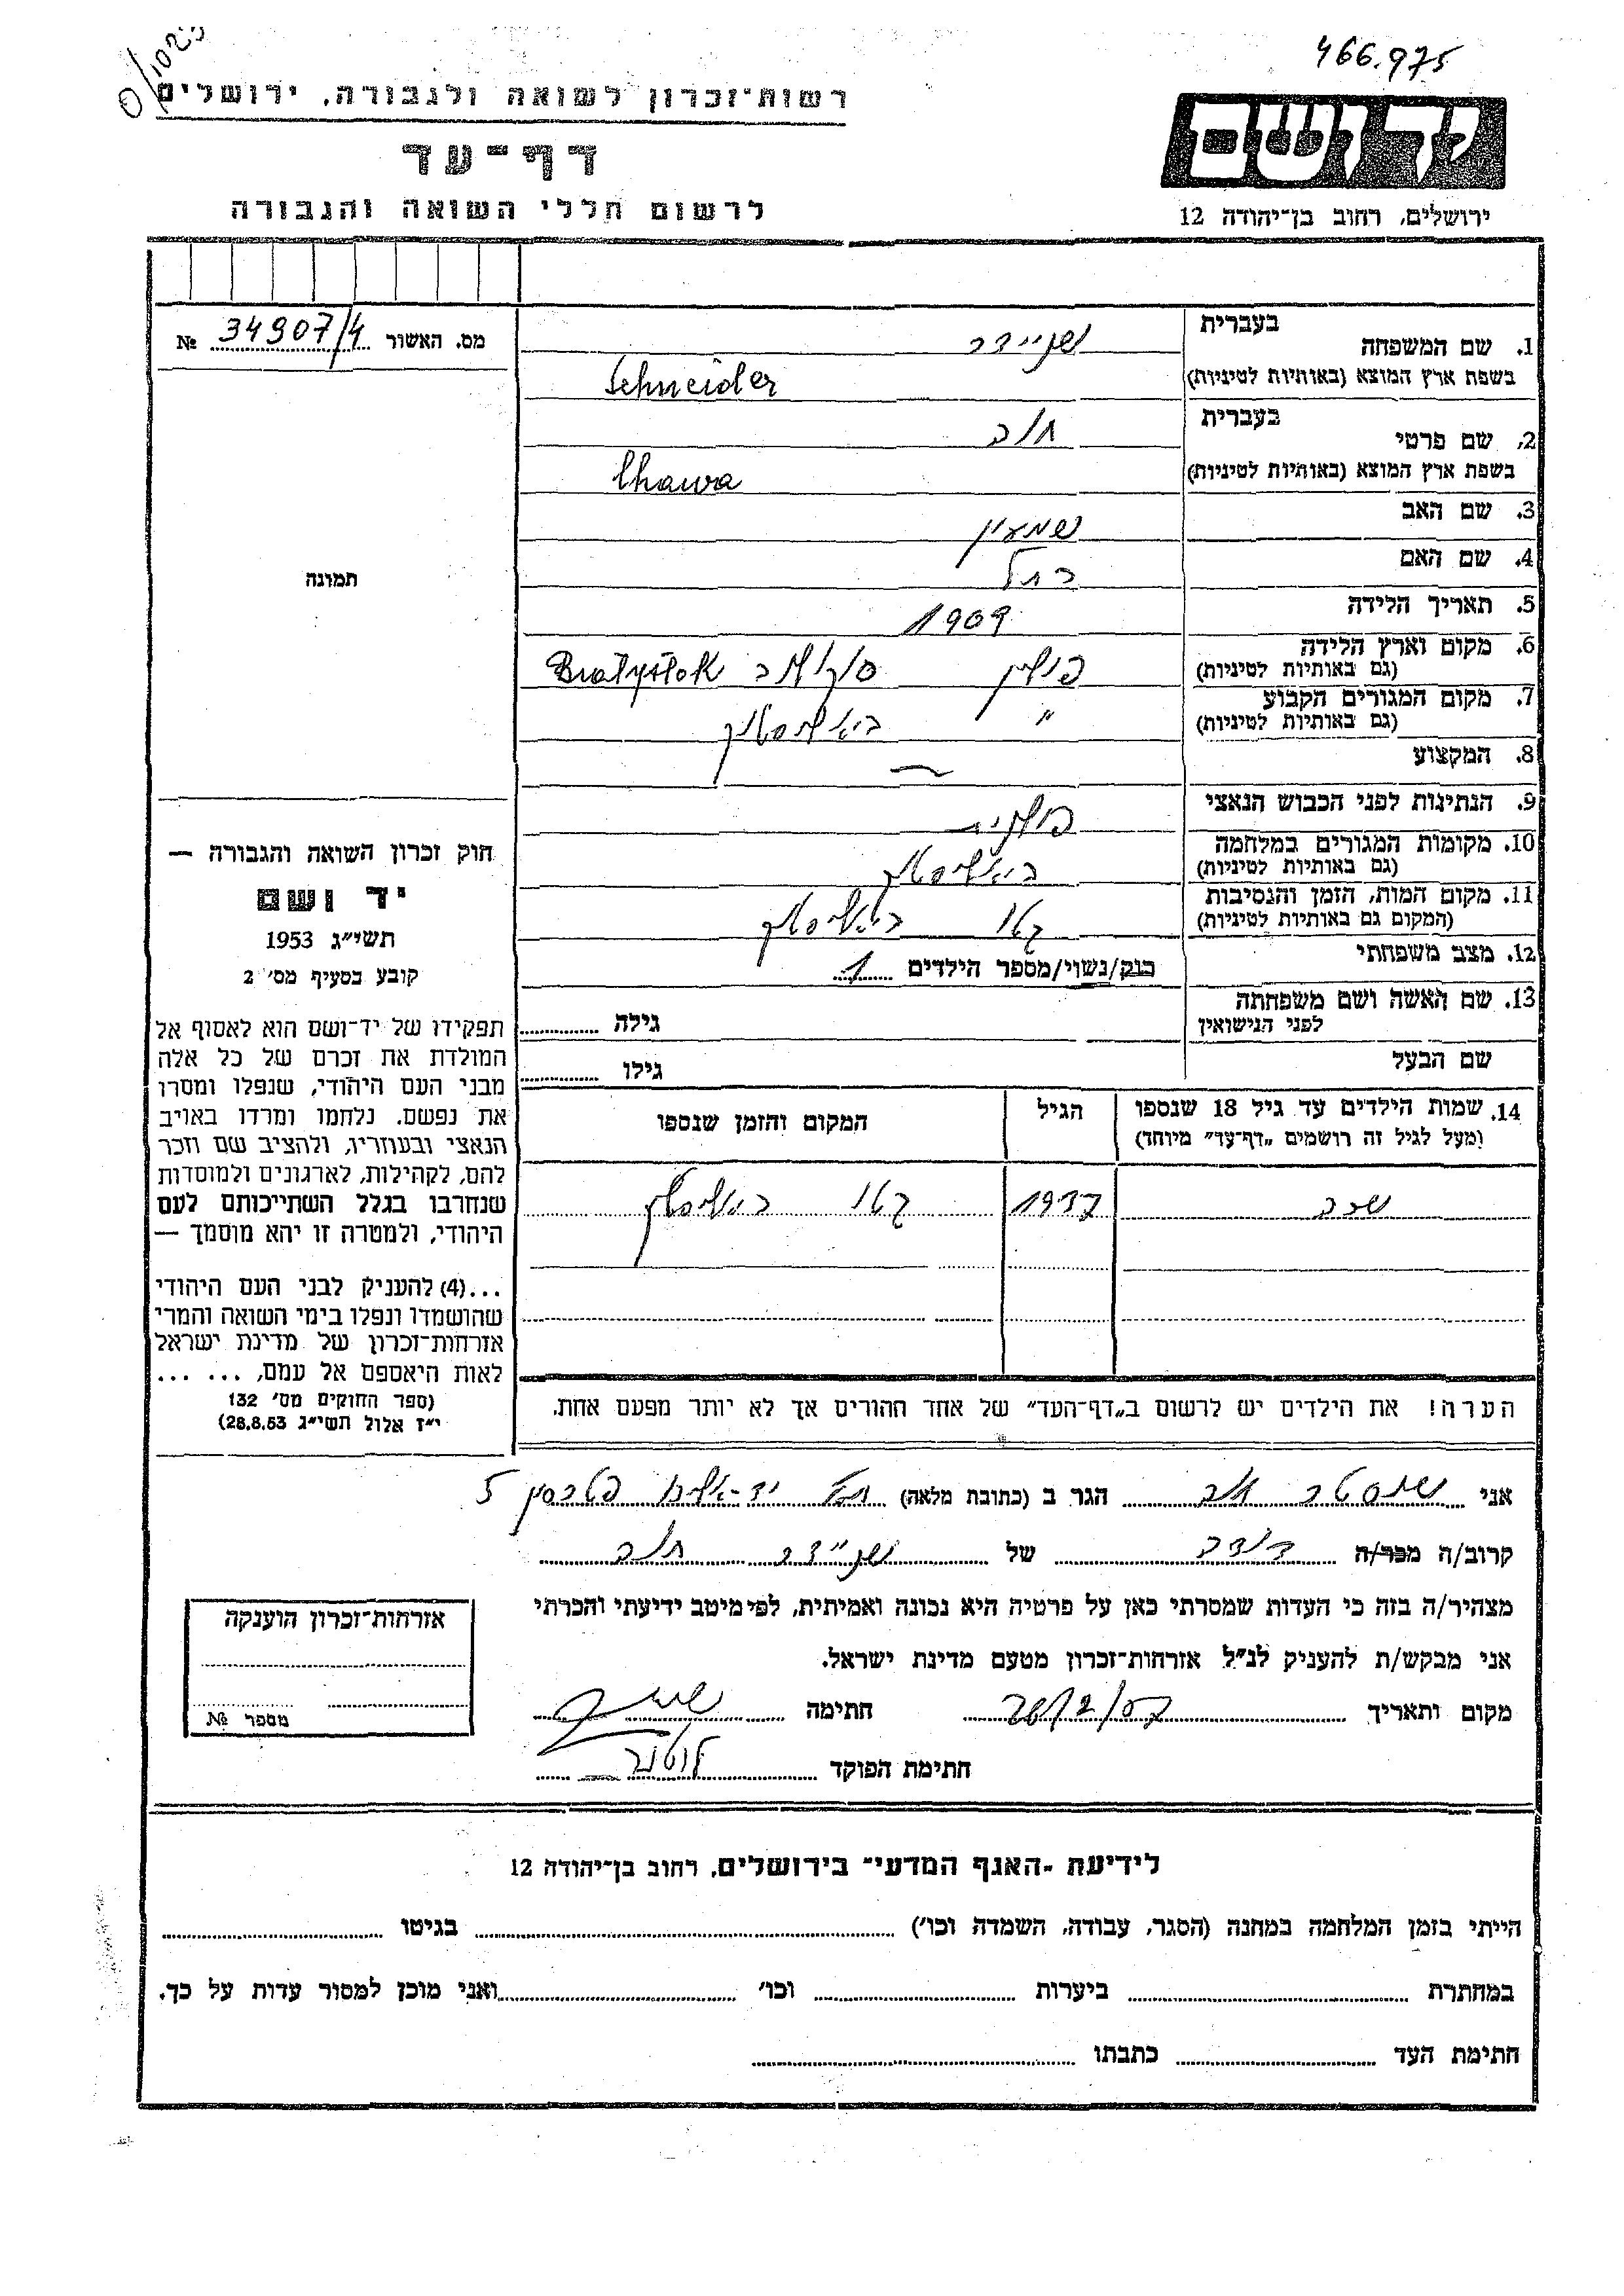 466.975
רשות־זכרון לשואה ולגבורה, ירושלים
דף־עד
לרשום חללי השואה והגבורה
יד ושם
ירושלים, רחוב בן־יהודה 12
מס. האשור 34907/4 №
תמונה
1. שם המשפחה בעברית שניידר
בשפת ארץ המוצא (באותיות לטיניות) Schneider
2. שם פרטי בעברית חוה
בשפת ארץ המוצא (באותיות לטיניות) Chawa
3. שם האב שמעון
4. שם האם רחל
5. תאריך הלידה 1909
6. מקום וארץ הלידה פולין Białystok
(גם באותיות לטיניות)
7. מקום המגורים הקבוע " ביאליסטוק
(גם באותיות לטיניות)
8. המקצוע —
9. הנתינות לפני הכבוש הנאצי פולנית
10. מקומות המגורים במלחמה ביאליסטוק
(גם באותיות לטיניות)
11. מקום המות, הזמן והנסיבות גטו ביאליסטוק
(המקום גם באותיות לטיניות)
12. מצב משפחתי רוק/נשוי/מספר הילדים 1
13. שם האשה ושם משפחתה גילה
לפני הנישואין
שם הבעל גילו
14. שמות הילדים עד גיל 18 שנספו הגיל המקום והזמן שנספו
(מעל לגיל זה רושמים „דף־עד" מיוחד)
שרה 1937 גטו ביאליסטוק
הערה! את הילדים יש לרשום ב„דף־העד" של אחד ההורים אך לא יותר מפעם אחת.
חוק זכרון השואה והגבורה —
יד ושם
תשי״ג 1953
קובע בסעיף מס׳ 2
תפקידו של יד־ושם הוא לאסוף אל
המולדת את זכרם של כל אלה
מבני העם היהודי, שנפלו ומסרו
את נפשם. נלחמו ומרדו באויב
הנאצי ובעוזריו, ולהציב שם וזכר
להם, לקהילות, לארגונים ולמוסדות
שנחרבו בגלל השתייכותם לעם
היהודי, ולמטרה זו יהא מוסמך —
...(4) להעניק לבני העם היהודי
שהושמדו ונפלו בימי השואה והמרי
אזרחות־זכרון של מדינת ישראל
לאות היאספם אל עמם, ... ...
(ספר החוקים מס׳ 132
י״ז אלול תשי״ג 28.8.53)
אני שוסטר חוה הגר ב (כתובת מלאה) תל יד־אליהו 5
קרוב/ה מכר/ה דודה של שניידר חוה
מצהיר/ה בזה כי העדות שמסרתי כאן על פרטיה היא נכונה ואמיתית, לפי מיטב ידיעתי והכרתי
אני מבקש/ת להעניק לנ״ל אזרחות־זכרון מטעם מדינת ישראל.
מקום ותאריך חתימה
חתימת הפוקד
אזרחות־זכרון הוענקה
מספר №
לידיעת „האגף המדעי" בירושלים, רחוב בן־יהודה 12
הייתי בזמן המלחמה במחנה (הסגר, עבודה, השמדה וכו׳) בגיטו
במחתרת ביערות וכו׳ ואני מוכן למסור עדות על כך.
חתימת העד כתבתו